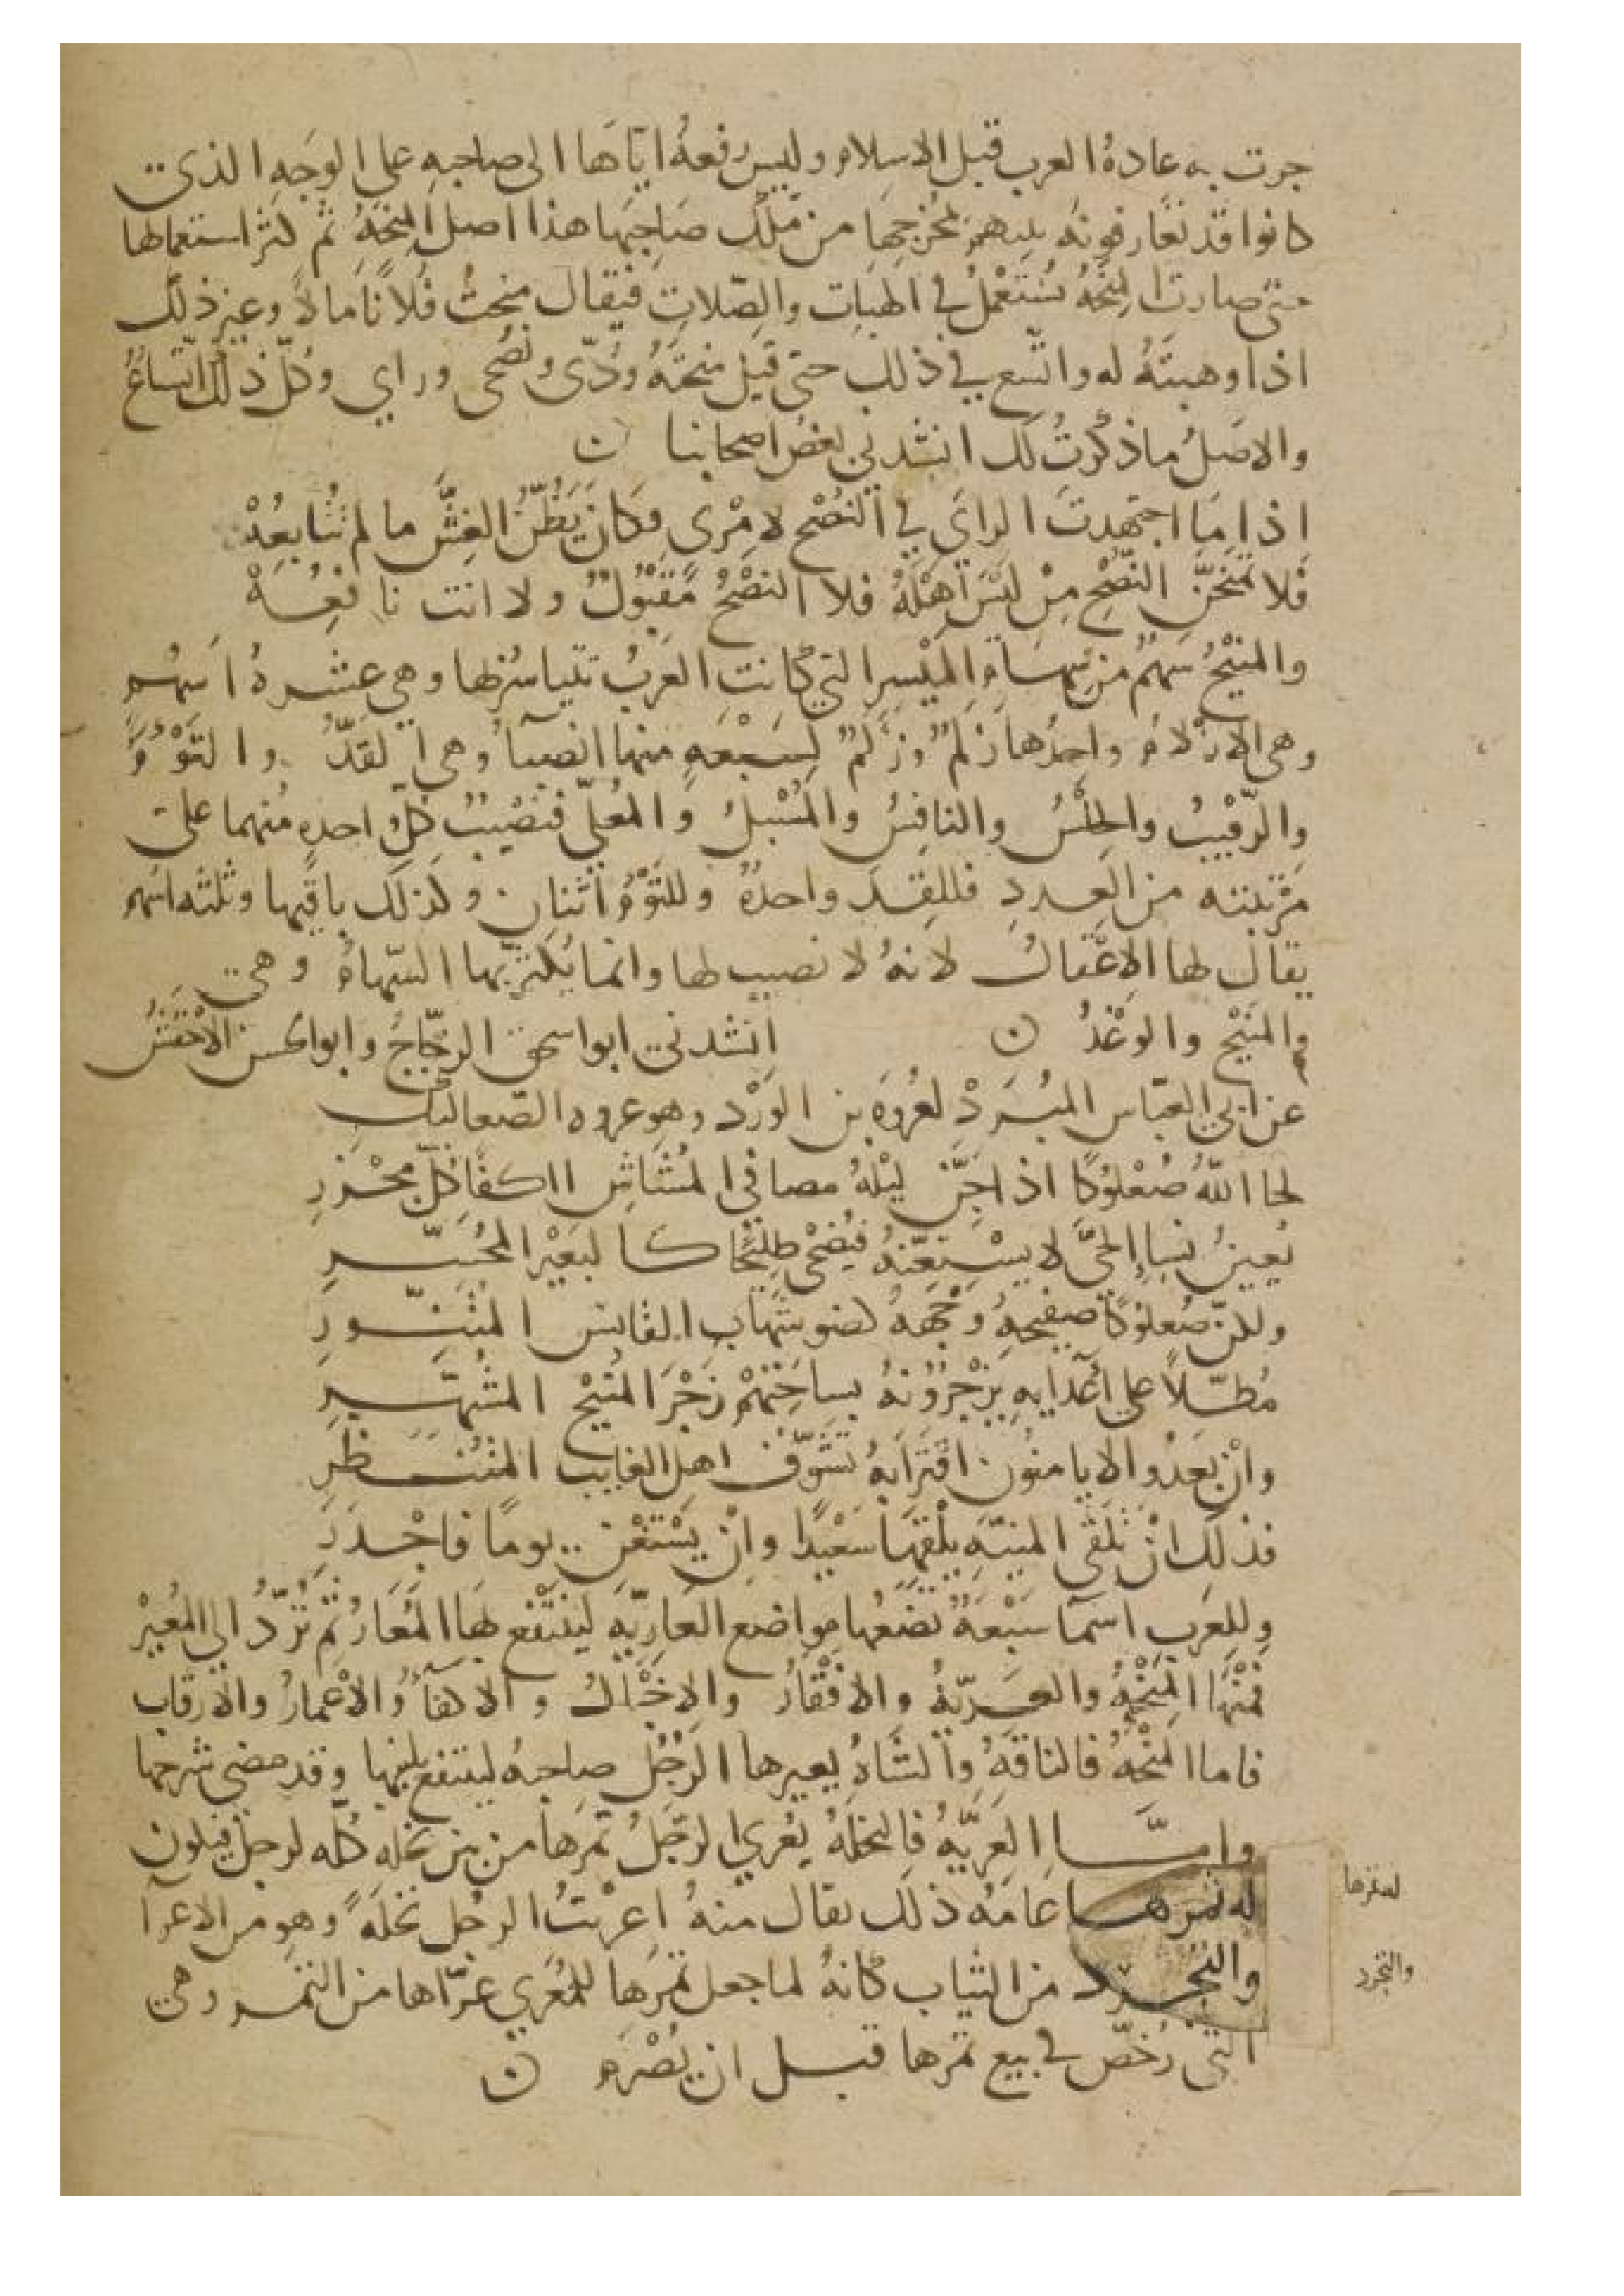 جرت به عادة العرب قبل الاسلام وليس رفعه اياها الى صاحبه على الوجه الذي
كانوا قد تعارفونه بينهم لمخرجها من ملك صاحبها هذا اصل المنحة ثم كثر استعمالها
حتى صارت المنحة تستعمل في الهبات والصلات فيقال منحت فلانا مالا وغير ذلك
اذا وهبته له واتسع في ذلك حتى قيل منحته ودى ونصحى وراي وكل ذلك اتساع
والاصل ما ذكرت لك انشدني بعض اصحابنا
اذا ما اجتهدت الراي في النصح لامرى وكان يظن الغش ما لم تتابعه
فلا تمنحن النصح من ليس اهله فلا النصح مقبول ولا انت نافعه
والمنيح سهم من سهام الميسر التي كانت العرب تتياسر بها وهي عشرة اسهم
وهي الازلام واحدها زلم وزلم لسبعة منها انصبا وهي الفذ والتوؤم
والرقيب والحلس والنافس والمسبل والمعلى فنصيب كل واحد منهما على
مرتبته من العدد فللفذ واحدة وللتوؤم اثنان وكذلك باقيها وثلثه اسهم
يقال لها الاغفال لانه لا نصيب لها وانما يكثر بها السهام وهي
والمنيح والوغد انشدني ابو اسحق الزجاج وابو الحسن الاخفش
عن ابي العباس المبرد لعروة بن الورد وهو عروه الصعاليك
لحا الله صعلوكا اذا جن ليله مصافى المشاش االفا كل مجزر
يعين نسا الحي لا يستعنه فيضحى طليحا كالبعير المحسر
ولكن صعلوكا صفيحه وجهه كضو شهاب القابس المتنور
مطلا على اعدايه يزجرونه بساحتهم زجر المنيح المشهر
وان بعدوا لا يامنون اقترابه تشوف اهل الغايب المتنظر
فذلك ان تلقى المنيه يلقها سعيدا وان يستغن يوما فاجدر
وللعرب اسما سبعة تضعها مواضع العاريه لينتفع بها المعار ثم تردّ الى المعير
فمنها المنحة والعرية والافقار والاخبال والاكفا والاعمار والارقاب
فاما المنحة فالناقة والشاة يعيرها الرجل صاحبه لينتفع بلبنها وقد مضى شرحها
واما العرية فالنخلة يعري الرجل ثمرها من بين نخله كله لرجل فيكون
له ثمرها عامه ذلك يقال منه اعريت الرجل نخلة وهو من الاعرا
والتجرد من الثياب كانه لما جعل ثمرها للمعري عراها من الثمر وهي
التي رخص في بيع ثمرها قبل ان يصرم
له ثمرها
والتجرد